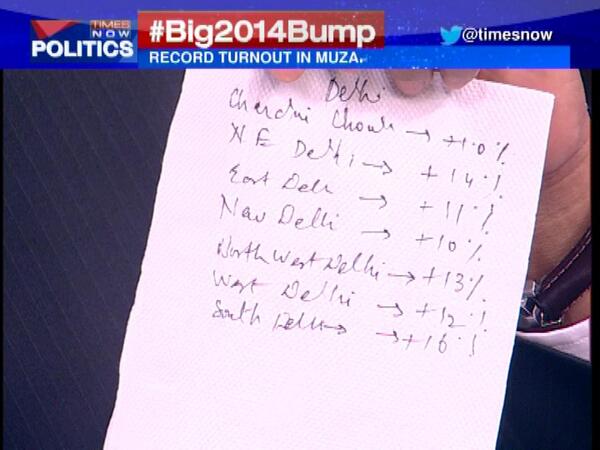 TIMES NOW
POLITICS
#Big2014Bump
@timesnow
RECORD TURNOUT IN MUZA
Delhi
Chandni Chowk → +10%
N E Delhi → +14%
East Delhi → +11%
New Delhi → +10%
North West Delhi → +13%
West Delhi → +12%
South Delhi → +16%